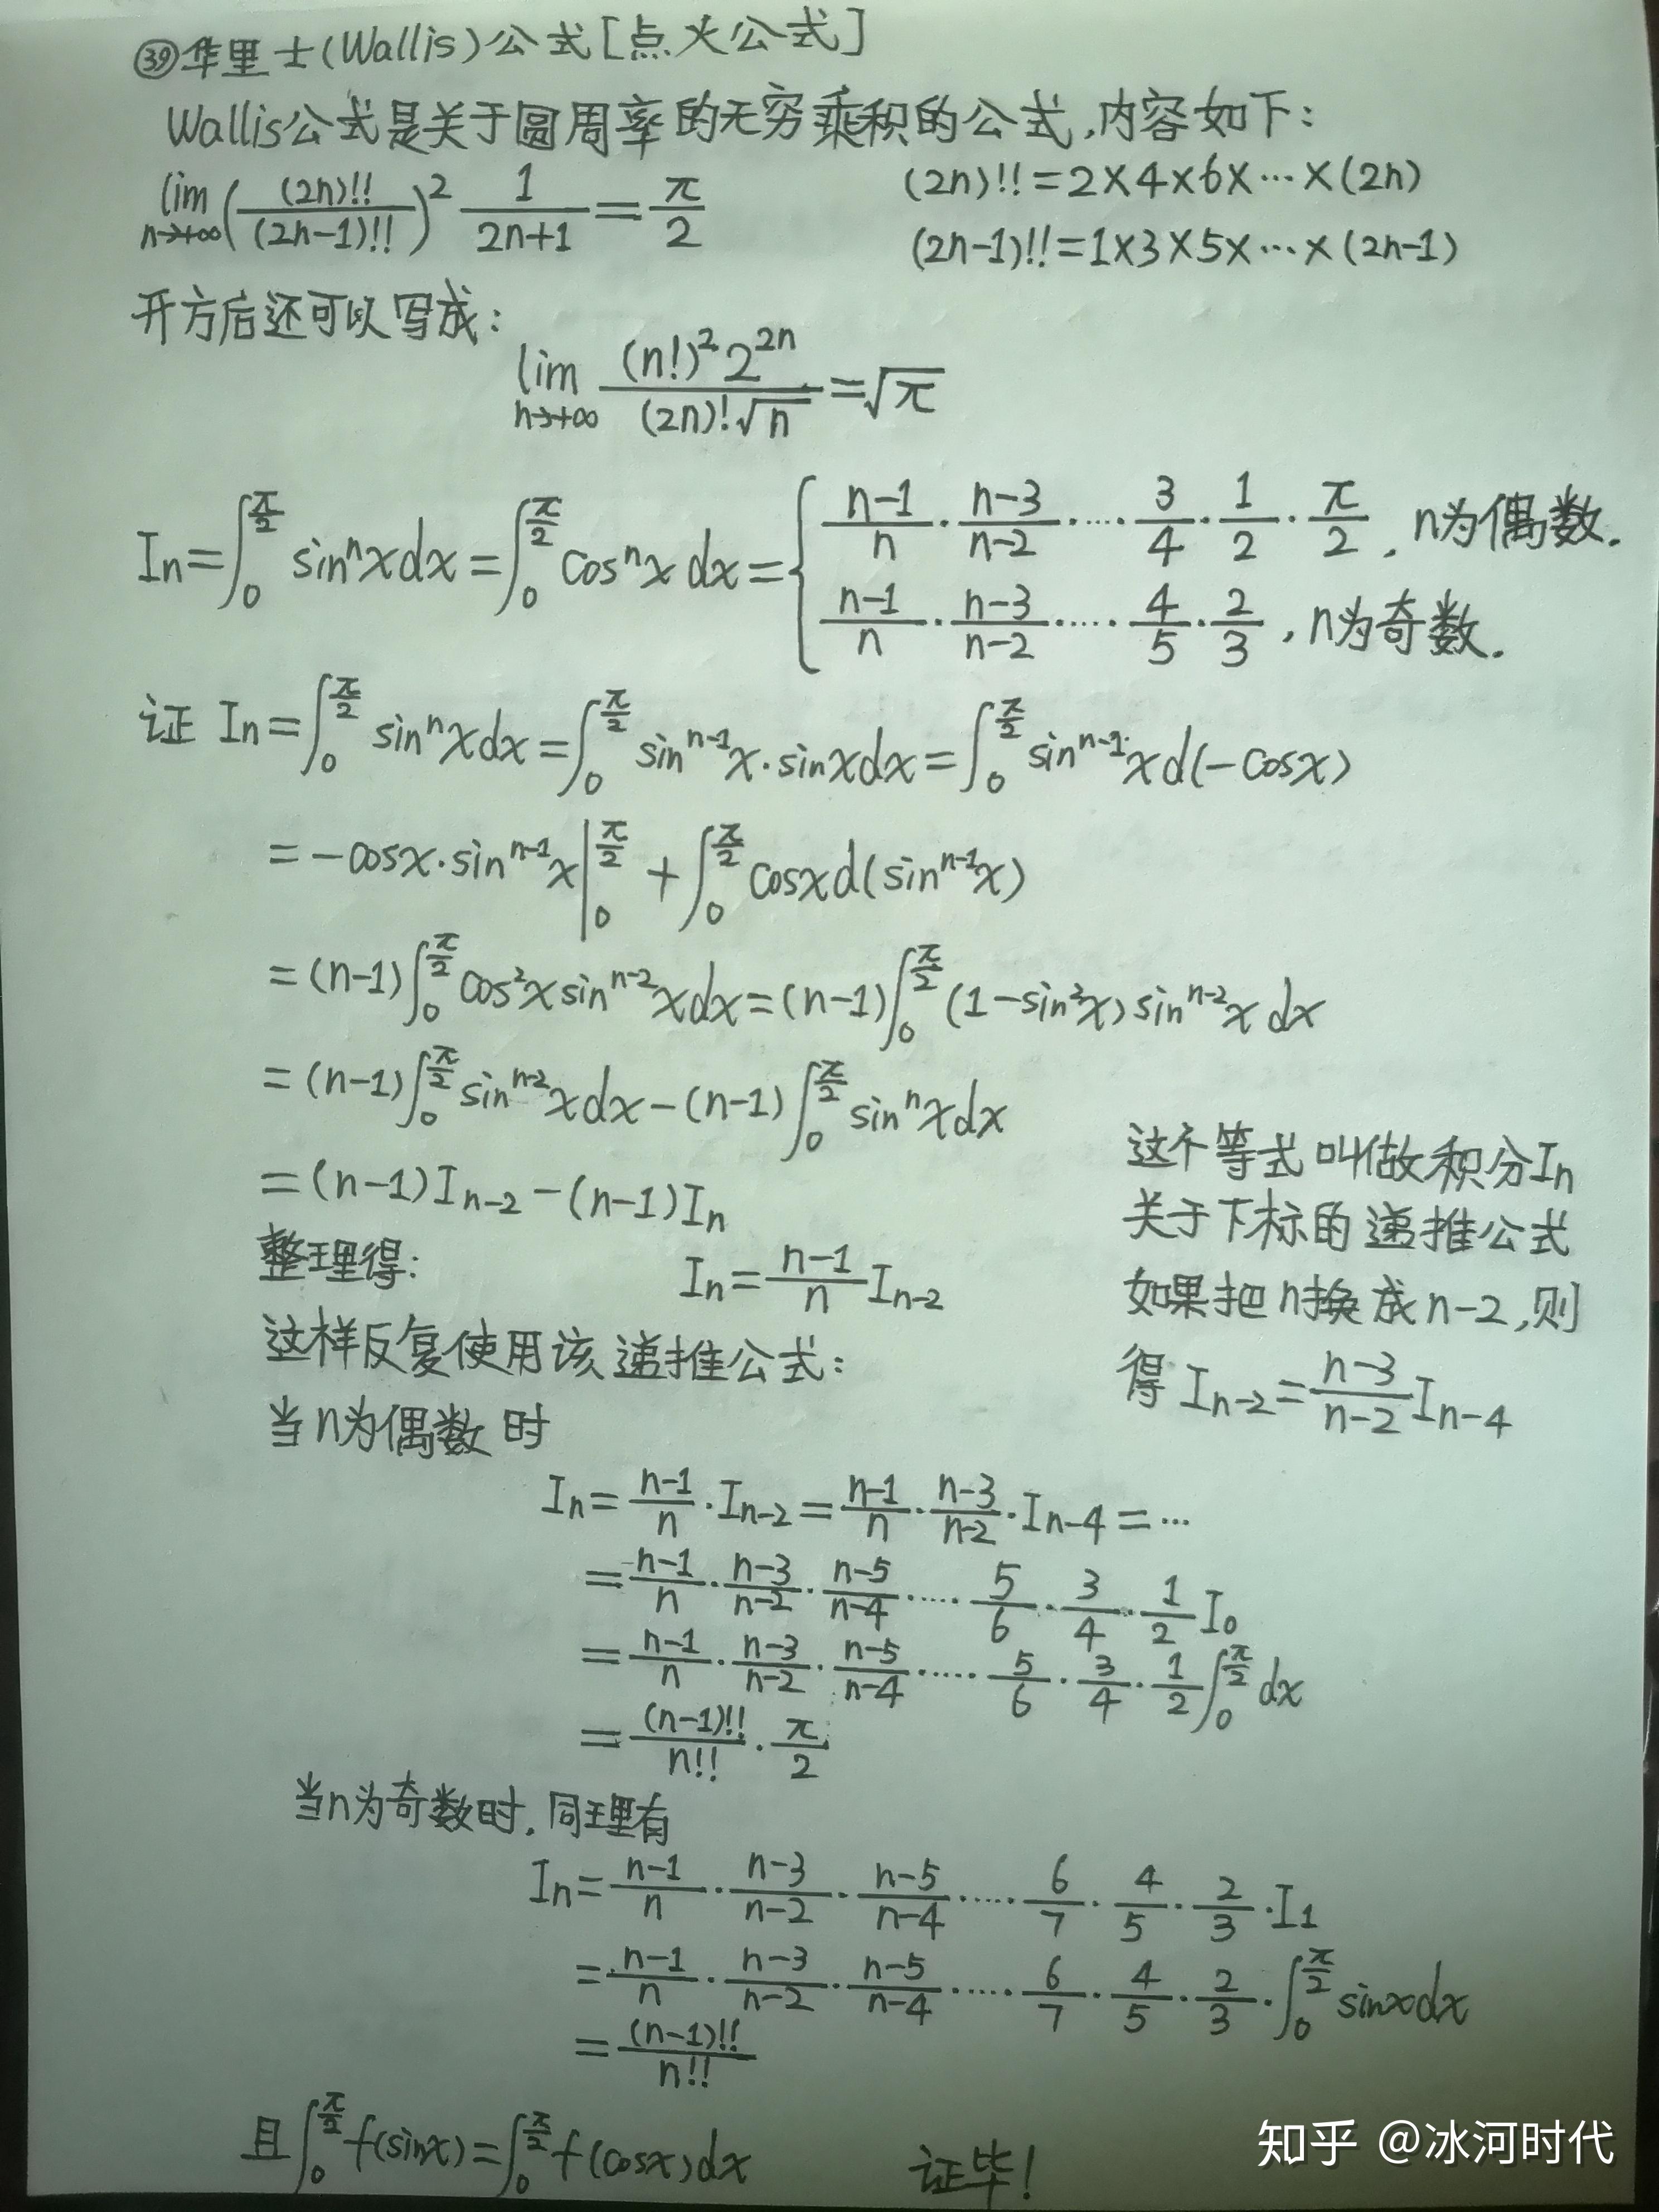 ㊴华里士(Wallis)公式[点火公式]
Wallis公式是关于圆周率的无穷乘积的公式,内容如下:
lim_{n→+∞} ((2n)!!/(2n-1)!!)² 1/(2n+1) = π/2
(2n)!!=2×4×6×⋯×(2n)
(2n-1)!!=1×3×5×⋯×(2n-1)
开方后还可以写成:
lim_{n→+∞} (n!)² 2^{2n} / ((2n)!√n) = √π
I_n = ∫_0^{π/2} sinⁿx dx = ∫_0^{π/2} cosⁿx dx = { (n-1)/n · (n-3)/(n-2) · ⋯ · 3/4 · 1/2 · π/2, n为偶数.
(n-1)/n · (n-3)/(n-2) · ⋯ · 4/5 · 2/3, n为奇数.
证 I_n = ∫_0^{π/2} sinⁿx dx = ∫_0^{π/2} sin^{n-1}x · sinx dx = ∫_0^{π/2} sin^{n-1}x d(-cosx)
= -cosx · sin^{n-1}x |_0^{π/2} + ∫_0^{π/2} cosx d(sin^{n-1}x)
= (n-1)∫_0^{π/2} cos²x sin^{n-2}x dx = (n-1)∫_0^{π/2} (1-sin²x) sin^{n-2}x dx
= (n-1)∫_0^{π/2} sin^{n-2}x dx - (n-1)∫_0^{π/2} sinⁿx dx
= (n-1)I_{n-2} - (n-1)I_n
整理得:
I_n = (n-1)/n I_{n-2}
这个等式叫做积分I_n
关于下标的递推公式
如果把n换成n-2,则
得 I_{n-2} = (n-3)/(n-2) I_{n-4}
这样反复使用该递推公式:
当n为偶数时
I_n = (n-1)/n · I_{n-2} = (n-1)/n · (n-3)/(n-2) · I_{n-4} = ⋯
= (n-1)/n · (n-3)/(n-2) · (n-5)/(n-4) · ⋯ · 5/6 · 3/4 · 1/2 I_0
= (n-1)/n · (n-3)/(n-2) · (n-5)/(n-4) · ⋯ · 5/6 · 3/4 · 1/2 ∫_0^{π/2} dx
= (n-1)!!/n!! · π/2
当n为奇数时,同理有
I_n = (n-1)/n · (n-3)/(n-2) · (n-5)/(n-4) · ⋯ · 6/7 · 4/5 · 2/3 · I_1
= (n-1)/n · (n-3)/(n-2) · (n-5)/(n-4) · ⋯ · 6/7 · 4/5 · 2/3 · ∫_0^{π/2} sinx dx
= (n-1)!!/n!!
且 ∫_0^{π/2} f(sinx) = ∫_0^{π/2} f(cosx)dx 证毕!
知乎 @冰河时代